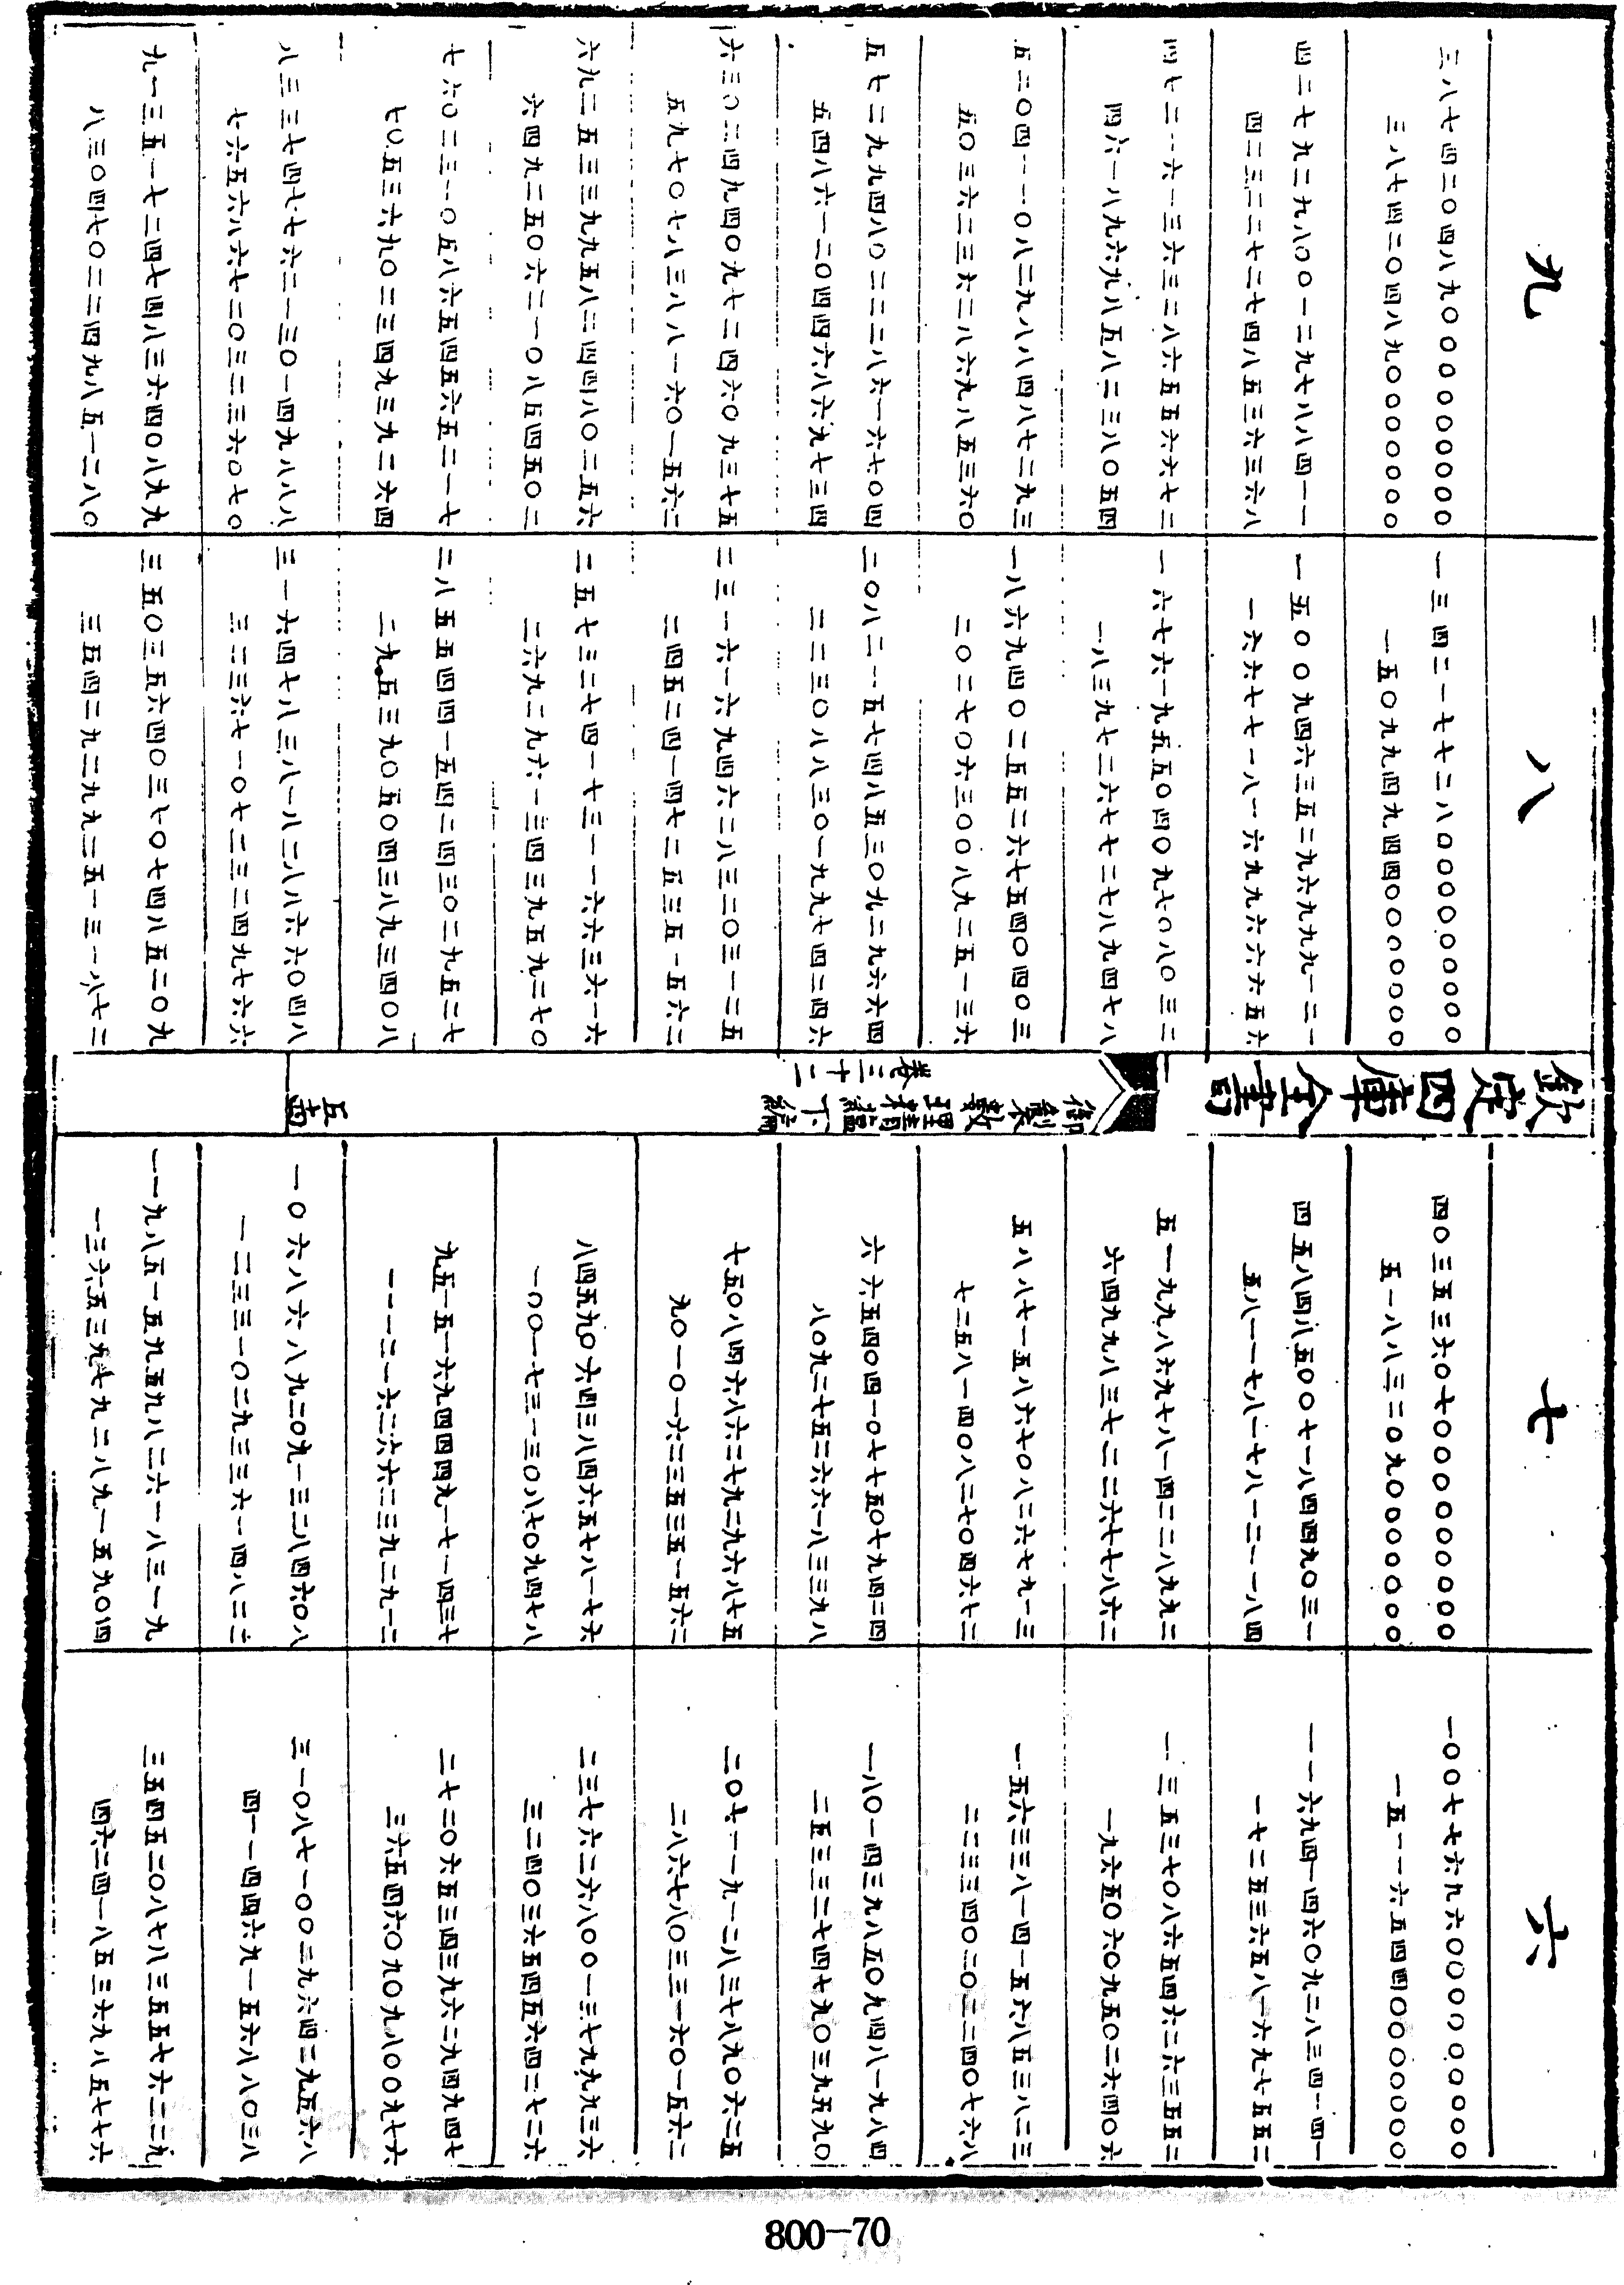 九
三八七四二〇四八九〇〇〇〇〇〇〇〇〇
三八七四二〇四八九〇〇〇〇〇〇〇
四二七九二九八〇〇一二九七八八四一一
四二三二二七二七四八五三六三六八
四七二一六一三六三二八六五五六六七二
四六一八九六九八五八二三八〇五四
五二〇四一一〇八二九八八四八七二九三
五〇三六二三六二八六九八五三六〇
五七二九九四八〇二二二八六一六七〇四
五四八六一二〇四四六八六九七三四
六三〇二四九四〇九七二四六〇九三七五
五九七〇七八三八八一六〇一五六二
六九二五三三九九五八二四四八〇二五六
六四九二五〇六二一〇八五四五〇二
七六〇二三一〇五八六五四五六五二一七
七〇五三六九〇二三四九三九二六四
八三三七四七七六二一三〇一四九八八八
七六五六八六七二〇三二三六〇七〇
九一三五一七二四七四八三六四〇八九九
八三〇四七〇二二四九八五一二八〇
八
一三四二一七七二八〇〇〇〇〇〇〇〇〇
一五〇九九四九四四〇〇〇〇〇〇〇
一五〇〇九四六三五二九六九九九一二一
一六六七七一八一六九九六六六五六
一六七六一九五五〇四〇九七〇八〇三二
一八三九七二六七七二七八九四七八
一八六九四〇二五五二六七五四〇四〇三
二〇二七〇六三〇〇八九二五一三六
二〇八二一五七四八五三〇九二九六六四
二二三〇八八三〇一九九七四二四六
二三一六一六九四六二八三二〇三一二五
二四五二四一四七二五三五一五六二
二五七三二七四一七三一一六六三六一六
二六九二九六一三四三九五九二七〇
二八五五四四一五四二四三〇二九五二七
二九五三九〇五〇四三八九三四〇八
三一六四七八三八一八二八八六六〇四八
三二三六七一〇七二三二四九七六六
三五〇三五六四〇三七〇七四八五二〇九
三五四二九二九九二五一三一八七二
欽定四庫全書
御製數理精藴下編
卷三十二
五
七
四〇三五三六〇七〇〇〇〇〇〇〇〇〇
五一八八三二〇九〇〇〇〇〇〇〇
四五八四八五〇〇七一八四四九〇三一
五八一一七八一七八一二一一八四
五一九九八六九七八一四二二八九九二
六四九九八三七二二六七七八六二
五八八七一五八六七〇八二六七九一三
七二五八一四〇八二七〇四六七二
六六五四〇四一〇七七五〇七九四二四
八〇九二七五二六六一八三三九八
七五〇八四六八六二七九二九六八七五
九〇一〇一六二三五三五一五六二
八四五九〇六四三八四六五七八一七六
一〇〇一七三一三〇八七〇九四七八
九五一五一六九四四四九一七一四三七
一一一二一六二六六二三九二九一二
一〇六八六八九二〇九一三二八四六〇八
一二三三一〇二九三三六一四八二二
一一九八五一五九五九八二六一八三一九
一三六五三九七九二八九一五九〇四
六
一〇〇七七六九六〇〇〇〇〇〇〇〇〇
一五一一六五四四〇〇〇〇〇〇〇
一一六九四一四六〇九二八三四一四一
一七二五三六五八一六九七五五二
一三五三七〇八六五四六二六三五五二
一九六五〇六〇九五〇二六四〇六
一五六三三八一四一五六八五三八二三
二二三三四〇二〇二二四〇七六八
一八〇一四三九八五〇九四八一九八四
二五三三二七四七九〇三九五九〇
二〇七一一九一二八三七八九〇六二五
二八六七八〇三三一六〇一五六二
二三七六二六八〇〇一三七九九九三六
三二四〇三六五四五六四二七二六
二七二〇六五三四三九六二九四九四七
三六五四六〇九〇九八〇〇九七六
三一〇八七一〇〇二九六四二九五六八
四一一四四六九一五六八八〇三八
三五四五二〇八七八三五五七六二二九
四六二四一八五三六九八五七七六
800—70